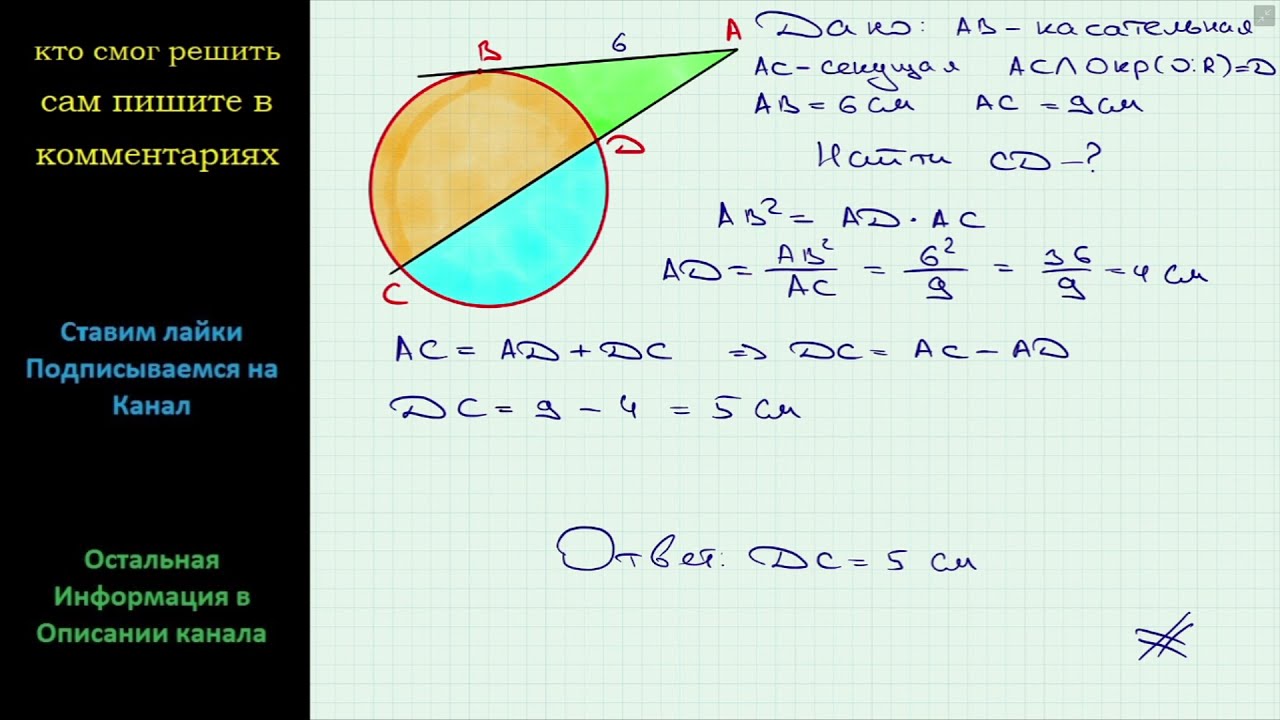 кто смог решить
сам пишите в
комментариях
Ставим лайки
Подписываемся на
Канал
Остальная
Информация в
Описании канала
B
6
A
D
C
Дано: AB – касательная
AC – секущая AC ∩ Окр(O:R) = D
AB = 6 см AC = 9 см
Найти CD – ?
AB² = AD · AC
AD = AB²/AC = 6²/9 = 36/9 = 4 см
AC = AD + DC ⇒ DC = AC – AD
DC = 9 – 4 = 5 см
Ответ: DC = 5 см